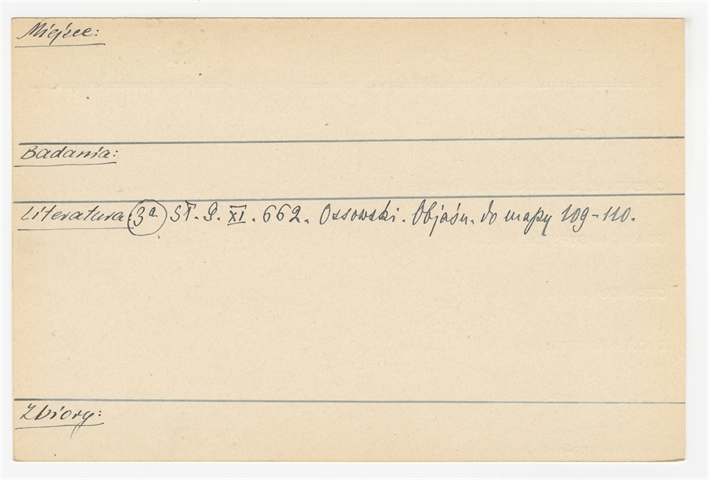 Miejsce:
Badania:
Literatura: 3a Sł. G. XI. 662. Ossowski. Objaśn. do mapy 109-110.
Zbiory: